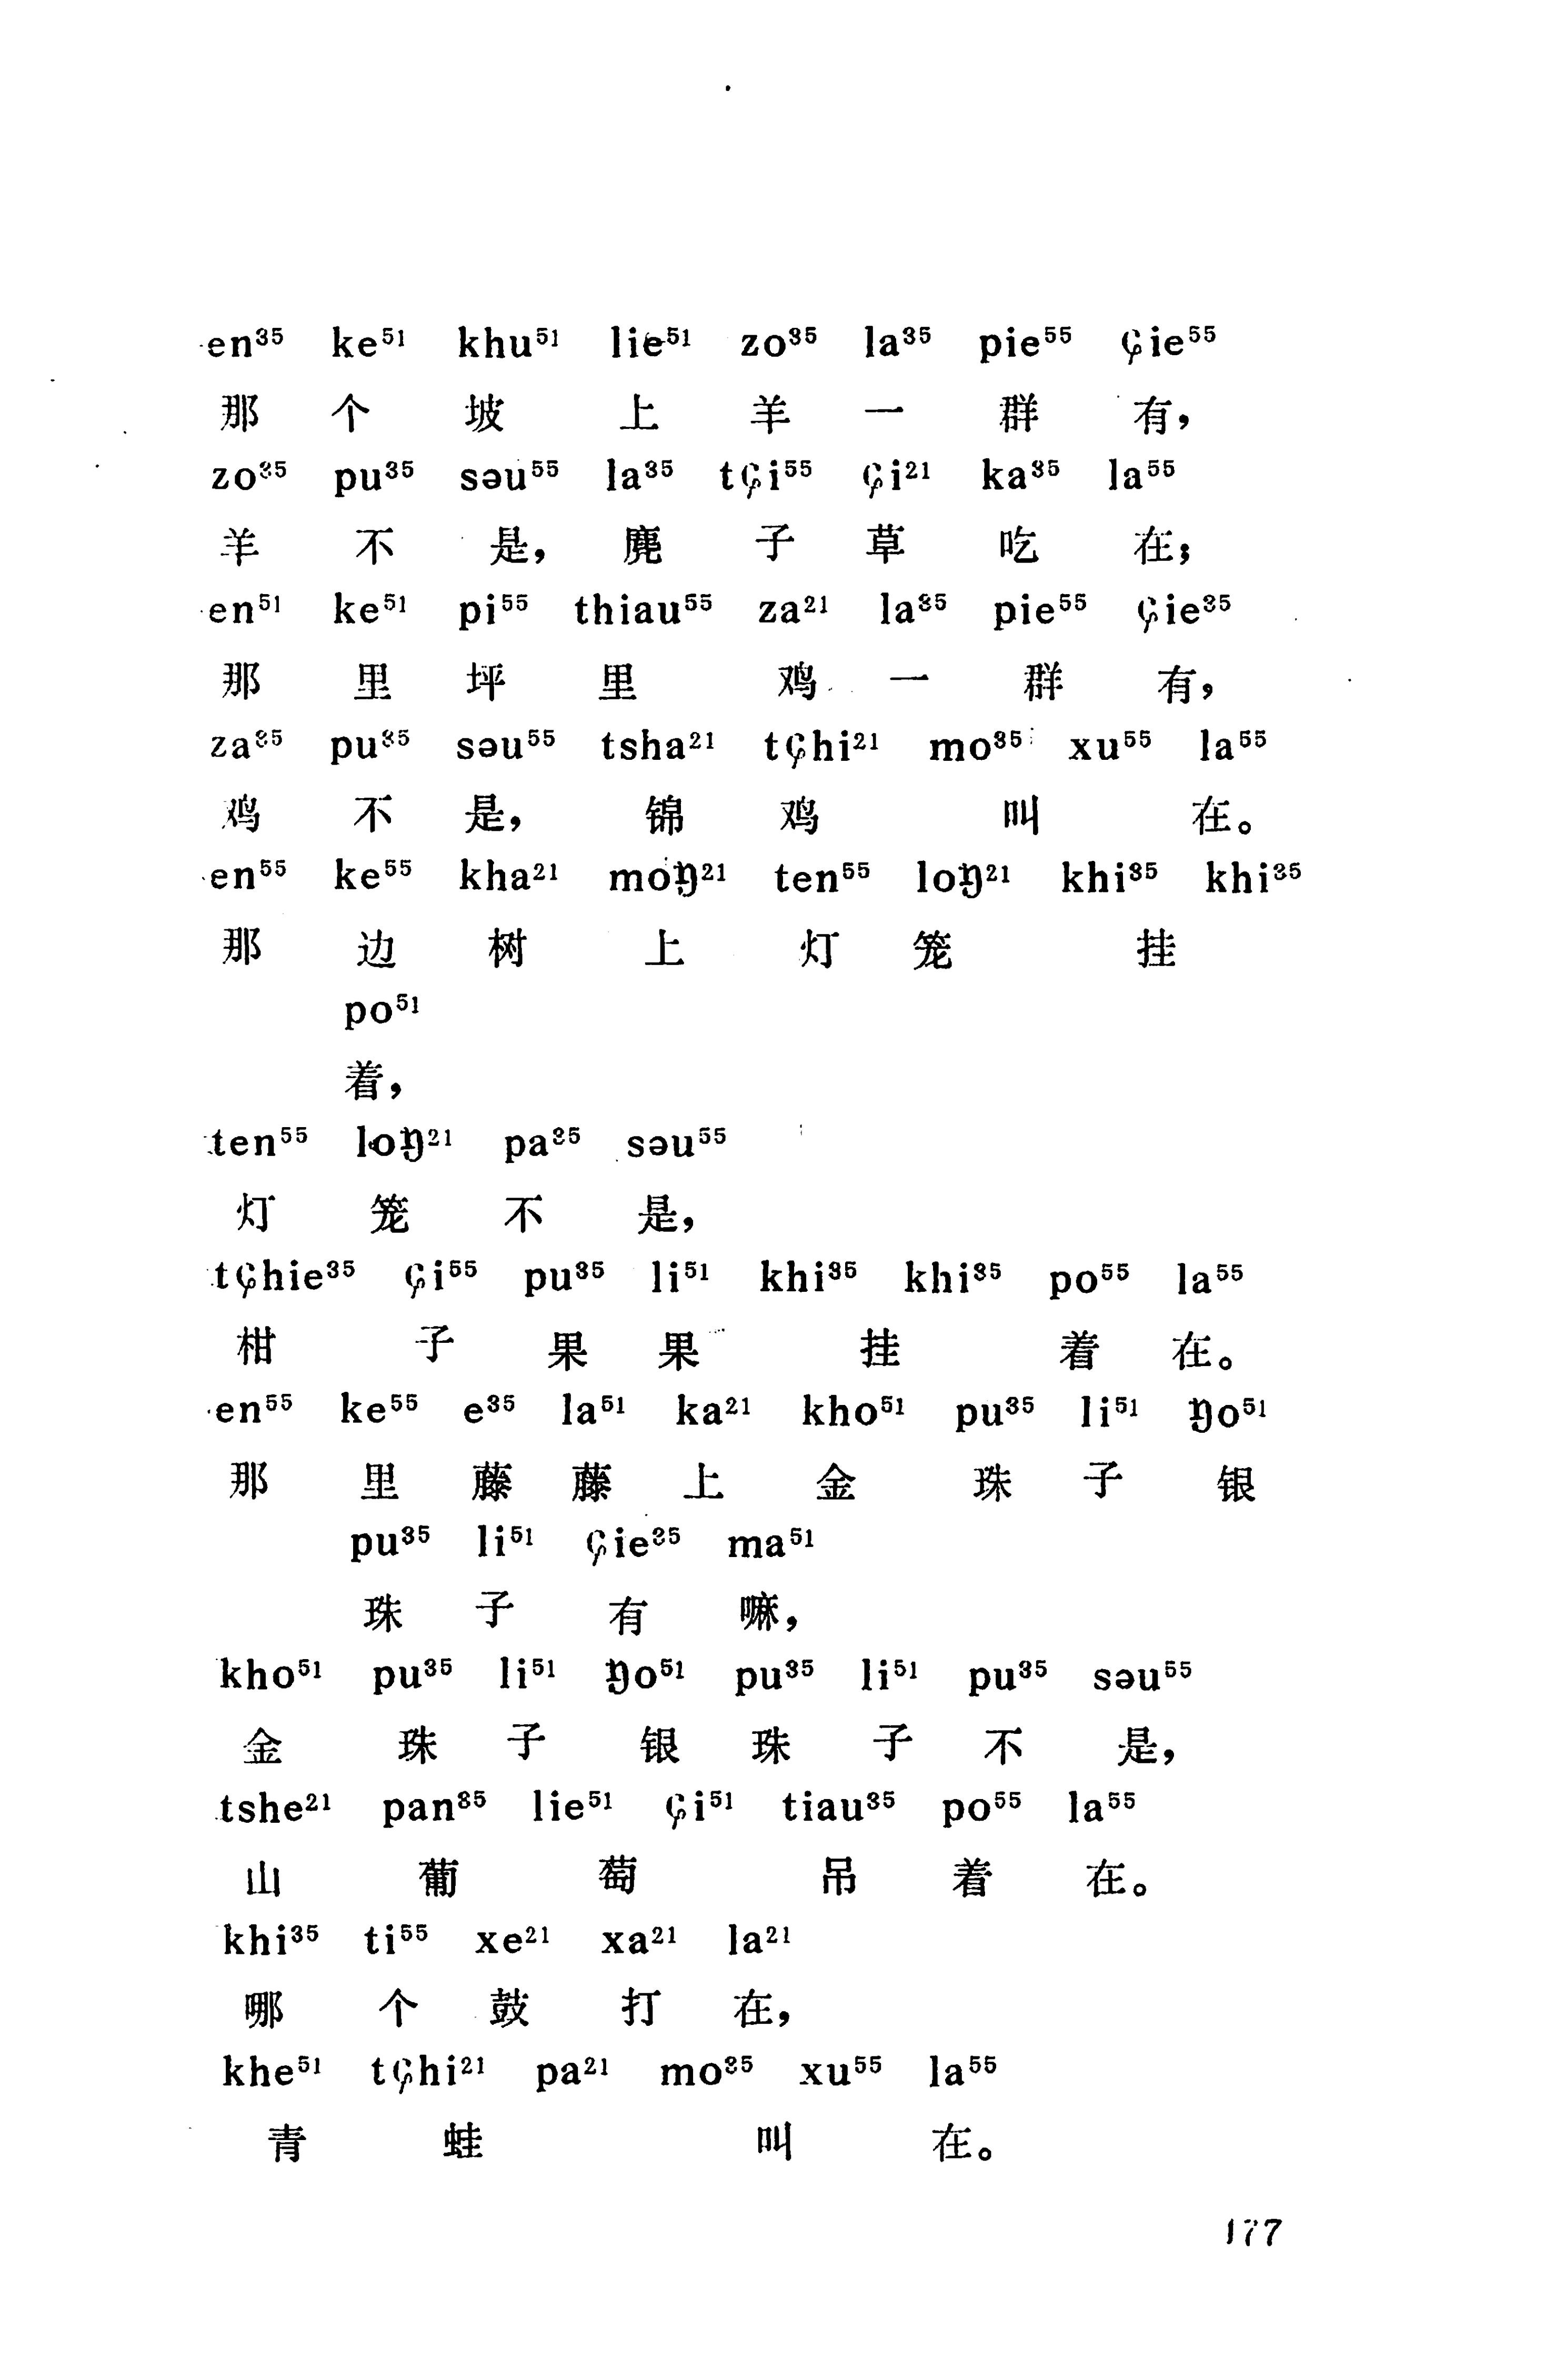 en³⁵ ke⁵¹ khu⁵¹ lie⁵¹ zo³⁵ la³⁵ pie⁵⁵ ɕie⁵⁵
那 个 坡 上 羊 一 群 有，
zo³⁵ pu³⁵ səu⁵⁵ la³⁵ tɕi⁵⁵ ɕi²¹ ka³⁵ la⁵⁵
羊 不 是，麂 子 草 吃 在；
en⁵¹ ke⁵¹ pi⁵⁵ thiau⁵⁵ za²¹ la³⁵ pie⁵⁵ ɕie³⁵
那 里 坪 里 鸡 一 群 有，
za³⁵ pu³⁵ səu⁵⁵ tsha²¹ tɕhi²¹ mo³⁵ xu⁵⁵ la⁵⁵
鸡 不 是，锦 鸡 叫 在。
en⁵⁵ ke⁵⁵ kha²¹ moŋ²¹ ten⁵⁵ loŋ²¹ khi³⁵ khi³⁵
那 边 树 上 灯 笼 挂
po⁵¹
着，
ten⁵⁵ loŋ²¹ pa³⁵ səu⁵⁵
灯 笼 不 是，
tɕhie³⁵ ɕi⁵⁵ pu³⁵ li⁵¹ khi³⁵ khi³⁵ po⁵⁵ la⁵⁵
柑 子 果 果 挂 着 在。
en⁵⁵ ke⁵⁵ e³⁵ la⁵¹ ka²¹ kho⁵¹ pu³⁵ li⁵¹ ŋo⁵¹
那 里 藤 藤 上 金 珠 子 银
pu³⁵ li⁵¹ ɕie³⁵ ma⁵¹
珠 子 有 嘛，
kho⁵¹ pu³⁵ li⁵¹ ŋo⁵¹ pu³⁵ li⁵¹ pu³⁵ səu⁵⁵
金 珠 子 银 珠 子 不 是，
tshe²¹ pan³⁵ lie⁵¹ ɕi⁵¹ tiau³⁵ po⁵⁵ la⁵⁵
山 葡 萄 吊 着 在。
khi³⁵ ti⁵⁵ xe²¹ xa²¹ la²¹
哪 个 鼓 打 在，
khe⁵¹ tɕhi²¹ pa²¹ mo³⁵ xu⁵⁵ la⁵⁵
青 蛙 叫 在。
177